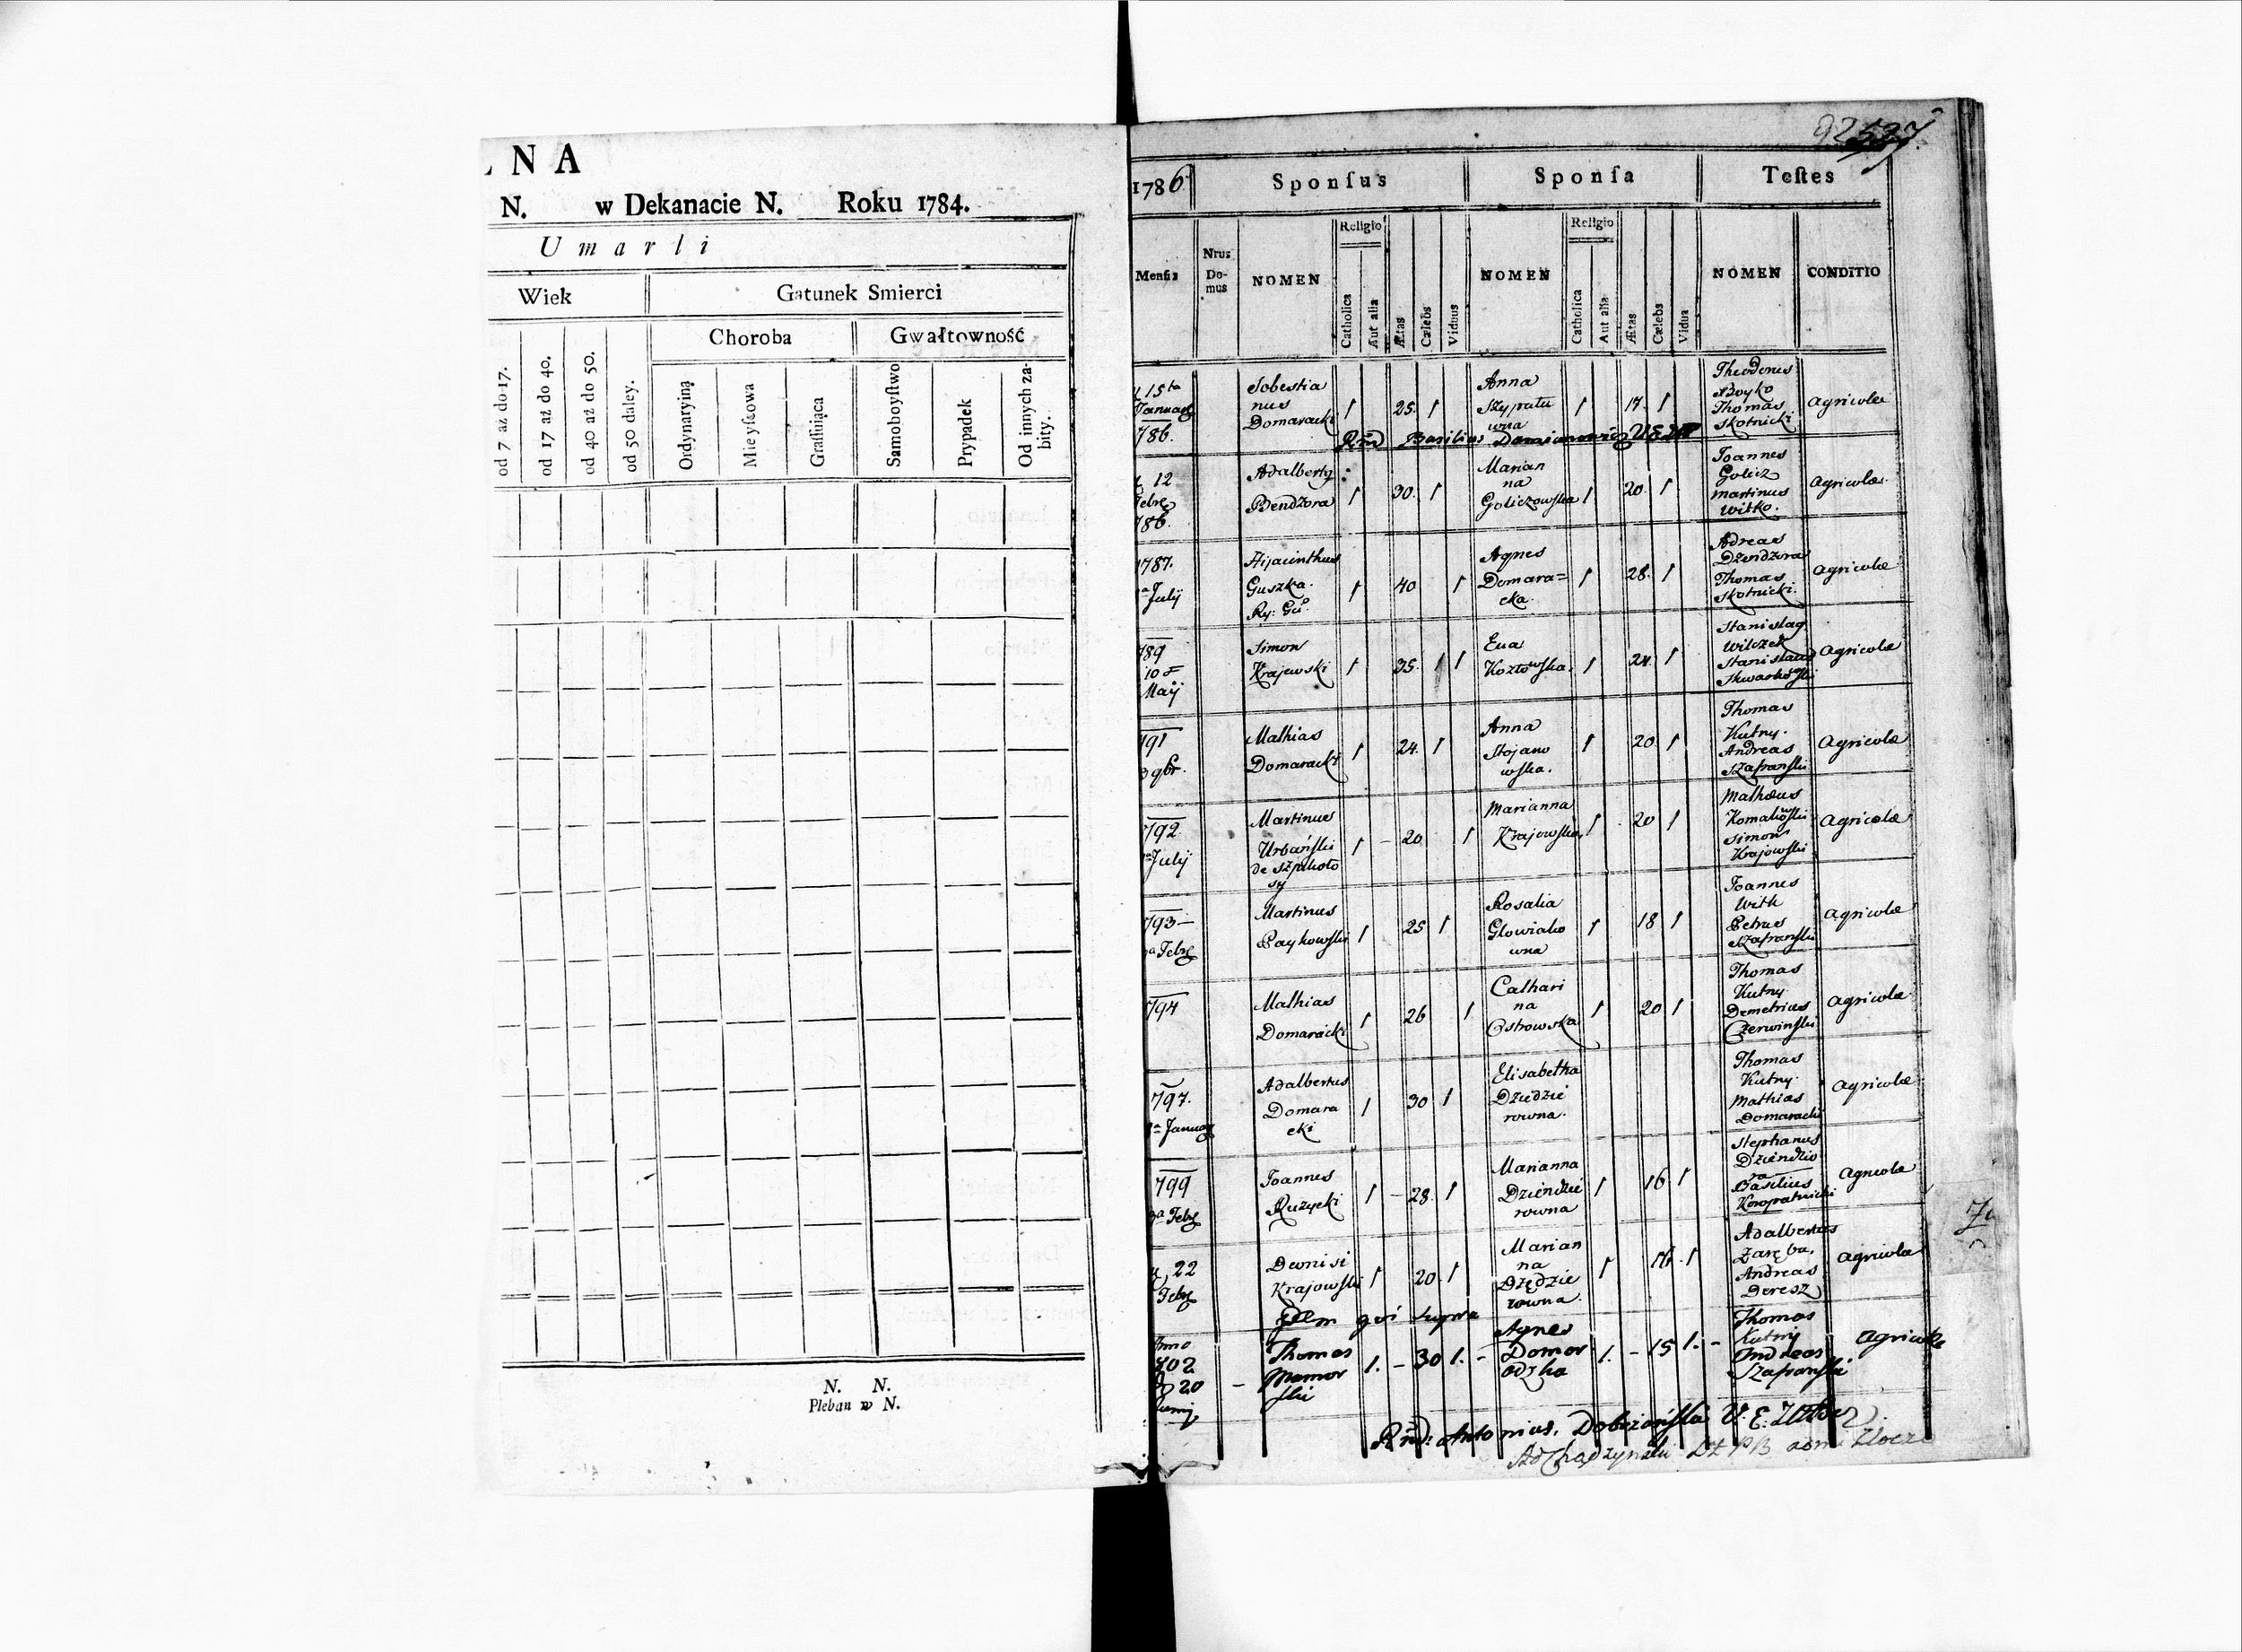 N A
N. w Dekanacie N. Roku 1784.
Umarli
Wiek
Gatunek Smierci
Choroba
Gwałtowność
od 7 aż do 17.
od 17 aż do 40.
od 40 aż do 50.
od 50 daley.
Ordynaryina
Mieyſcowa
Graſſuiąca
Samoboyſtwo
Prypadek
Od innych za-
bity.
N. N.
Pleban w N.
92
1786
Sponſus
Sponſa
Teſtes
Menſis
Nrus
Do-
mus
NOMEN
Religio
Catholica
Aut alia
Ætas
Cælebs
Viduus
NOMEN
Religio
Catholica
Aut alia
Ætas
Cælebs
Vidua
NOMEN
CONDITIO
15ta
Januarij
786.
Sobestia
nus
Domaracki
1 25. 1
Anna
Szypatu
wna
1 17. 1
Theodorus
Boyko
Thomas
Skotnicki
Agricolæ
Rnd Basilius Damianowicz
12
Febr
786.
Adalbertg
Bendzora
1 30. 1
Marian
na
Goliczowska
1 20. 1
Joannes
Golicz
Martinus
Witko.
Agricolæ.
1787.
July
Hijacinthus
Guszka.
1 40 1
Agnes
Domara=
cka.
1 28. 1
Adreas
Dzendzora
Thomas
Skotnicki.
Agricolæ
789
10
Maij
Simon
Krajewski
1 35. 1 1
Eva
Kozłowska.
1 24. 1
Stanislag
Wilczek
Stanislaus
Agricolæ
791
9br.
Mathias
Domaracki
1 24. 1
Anna
Stojano
wska.
1 20. 1
Thomas
Kutny.
Andreas
Szafranski
Agricolæ
792.
July
Martinus
Urbański
de
1 - 20 1
Marianna
Krajowska
1 20 1
Mathæus
Simon
Krajowski
Agricolæ
793-
Febr
Martinus
Paykowski
1 25 1
Rosalia
Głowiako
wna
1 18 1
Joannes
With
Petrus
Szafranski
Agricolæ
794
Mathias
Domaracki
1 26 1
Cathari
na
Ostrowska
1 20 1
Thomas
Kutny
Demetrius
Czerwinski
Agricolæ
797.
Januar
Adalbertus
Domara
cki
1 30 1
Elisabetha
Dziedzie
rowna.
Thomas
Kutny
Mathias
Domaracki
Agricolæ
799
Febr
Joannes
Ruzycki
1 - 28. 1
Marianna
Dziendzie
rowna
1 16 1
Stephanus
Dziendzio
ra
Basilius
Koropatnicki
Agricolæ
22
Febr
Deonisi
Krajowski
1 20. 1
Marian
na
Dzędzie
rowna.
1 16. 1
Adalbertus
Zaręba.
Andreas
Deresz
Agricolæ
Idem qui supra
Anno
802
20
Junij
- Thomas
Mamor
ski
1. - 30 1. -
Agnes
Domor
odzka
1. - 15 1. -
Thomas
Kutny
Andreas
Szafranski
Agricolæ
Rnd: Antonius. Dobrzański